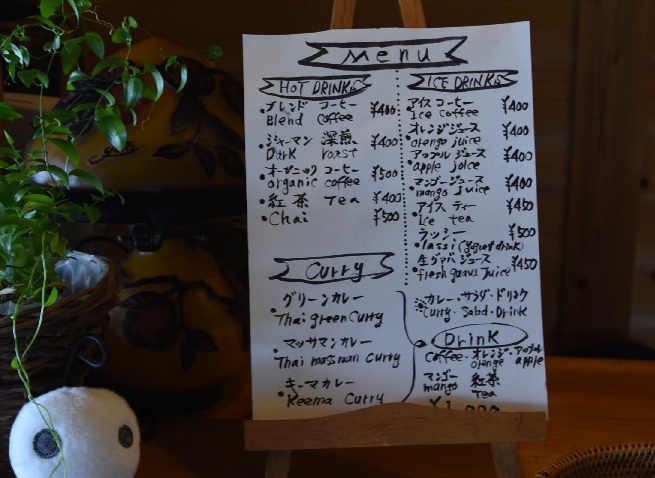 Menu
HOT DRINKS
ブレンド コーヒー ¥400
Blend Coffee
ジャーマン 深煎 ¥400
Dark roast
オーガニック コーヒー ¥500
organic coffee
紅茶 Tea ¥400
Chai ¥500
ICE DRINKS
アイスコーヒー ¥400
Ice Coffee
オレンジジュース ¥400
orengo juice
アップル ジュース ¥400
apple joice
マンゴージュース ¥400
mango juice
アイス ティー ¥450
Ice tea
ラッシー ¥500
lassi (yogurt drink)
生グァバジュース ¥450
fresh guava Juice
Curry
グリーンカレー
Thai green Curry
マッサマンカレー
Thai massman Curry
キーマカレー
Keema Curry
カレー・サラダ・ドリンク
Curry・Salad・Drink
Drink
coffee・オレンジ・アップル
orange apple
マンゴー 紅茶
mango Tea